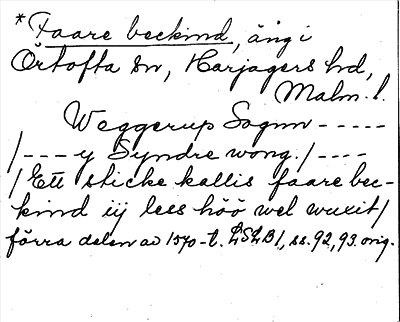 *Faare beckind, äng i
Örtofta sn, Harjagers hd,
Malm. l.
Weggerup Sognn -----
/--- y Syndre wong. /----
/ Ett sticke kallis faare bec-
kind iij less höö wel wuxit/
förra delen av 1570-t. LSLB1, ss. 92, 93. orig.